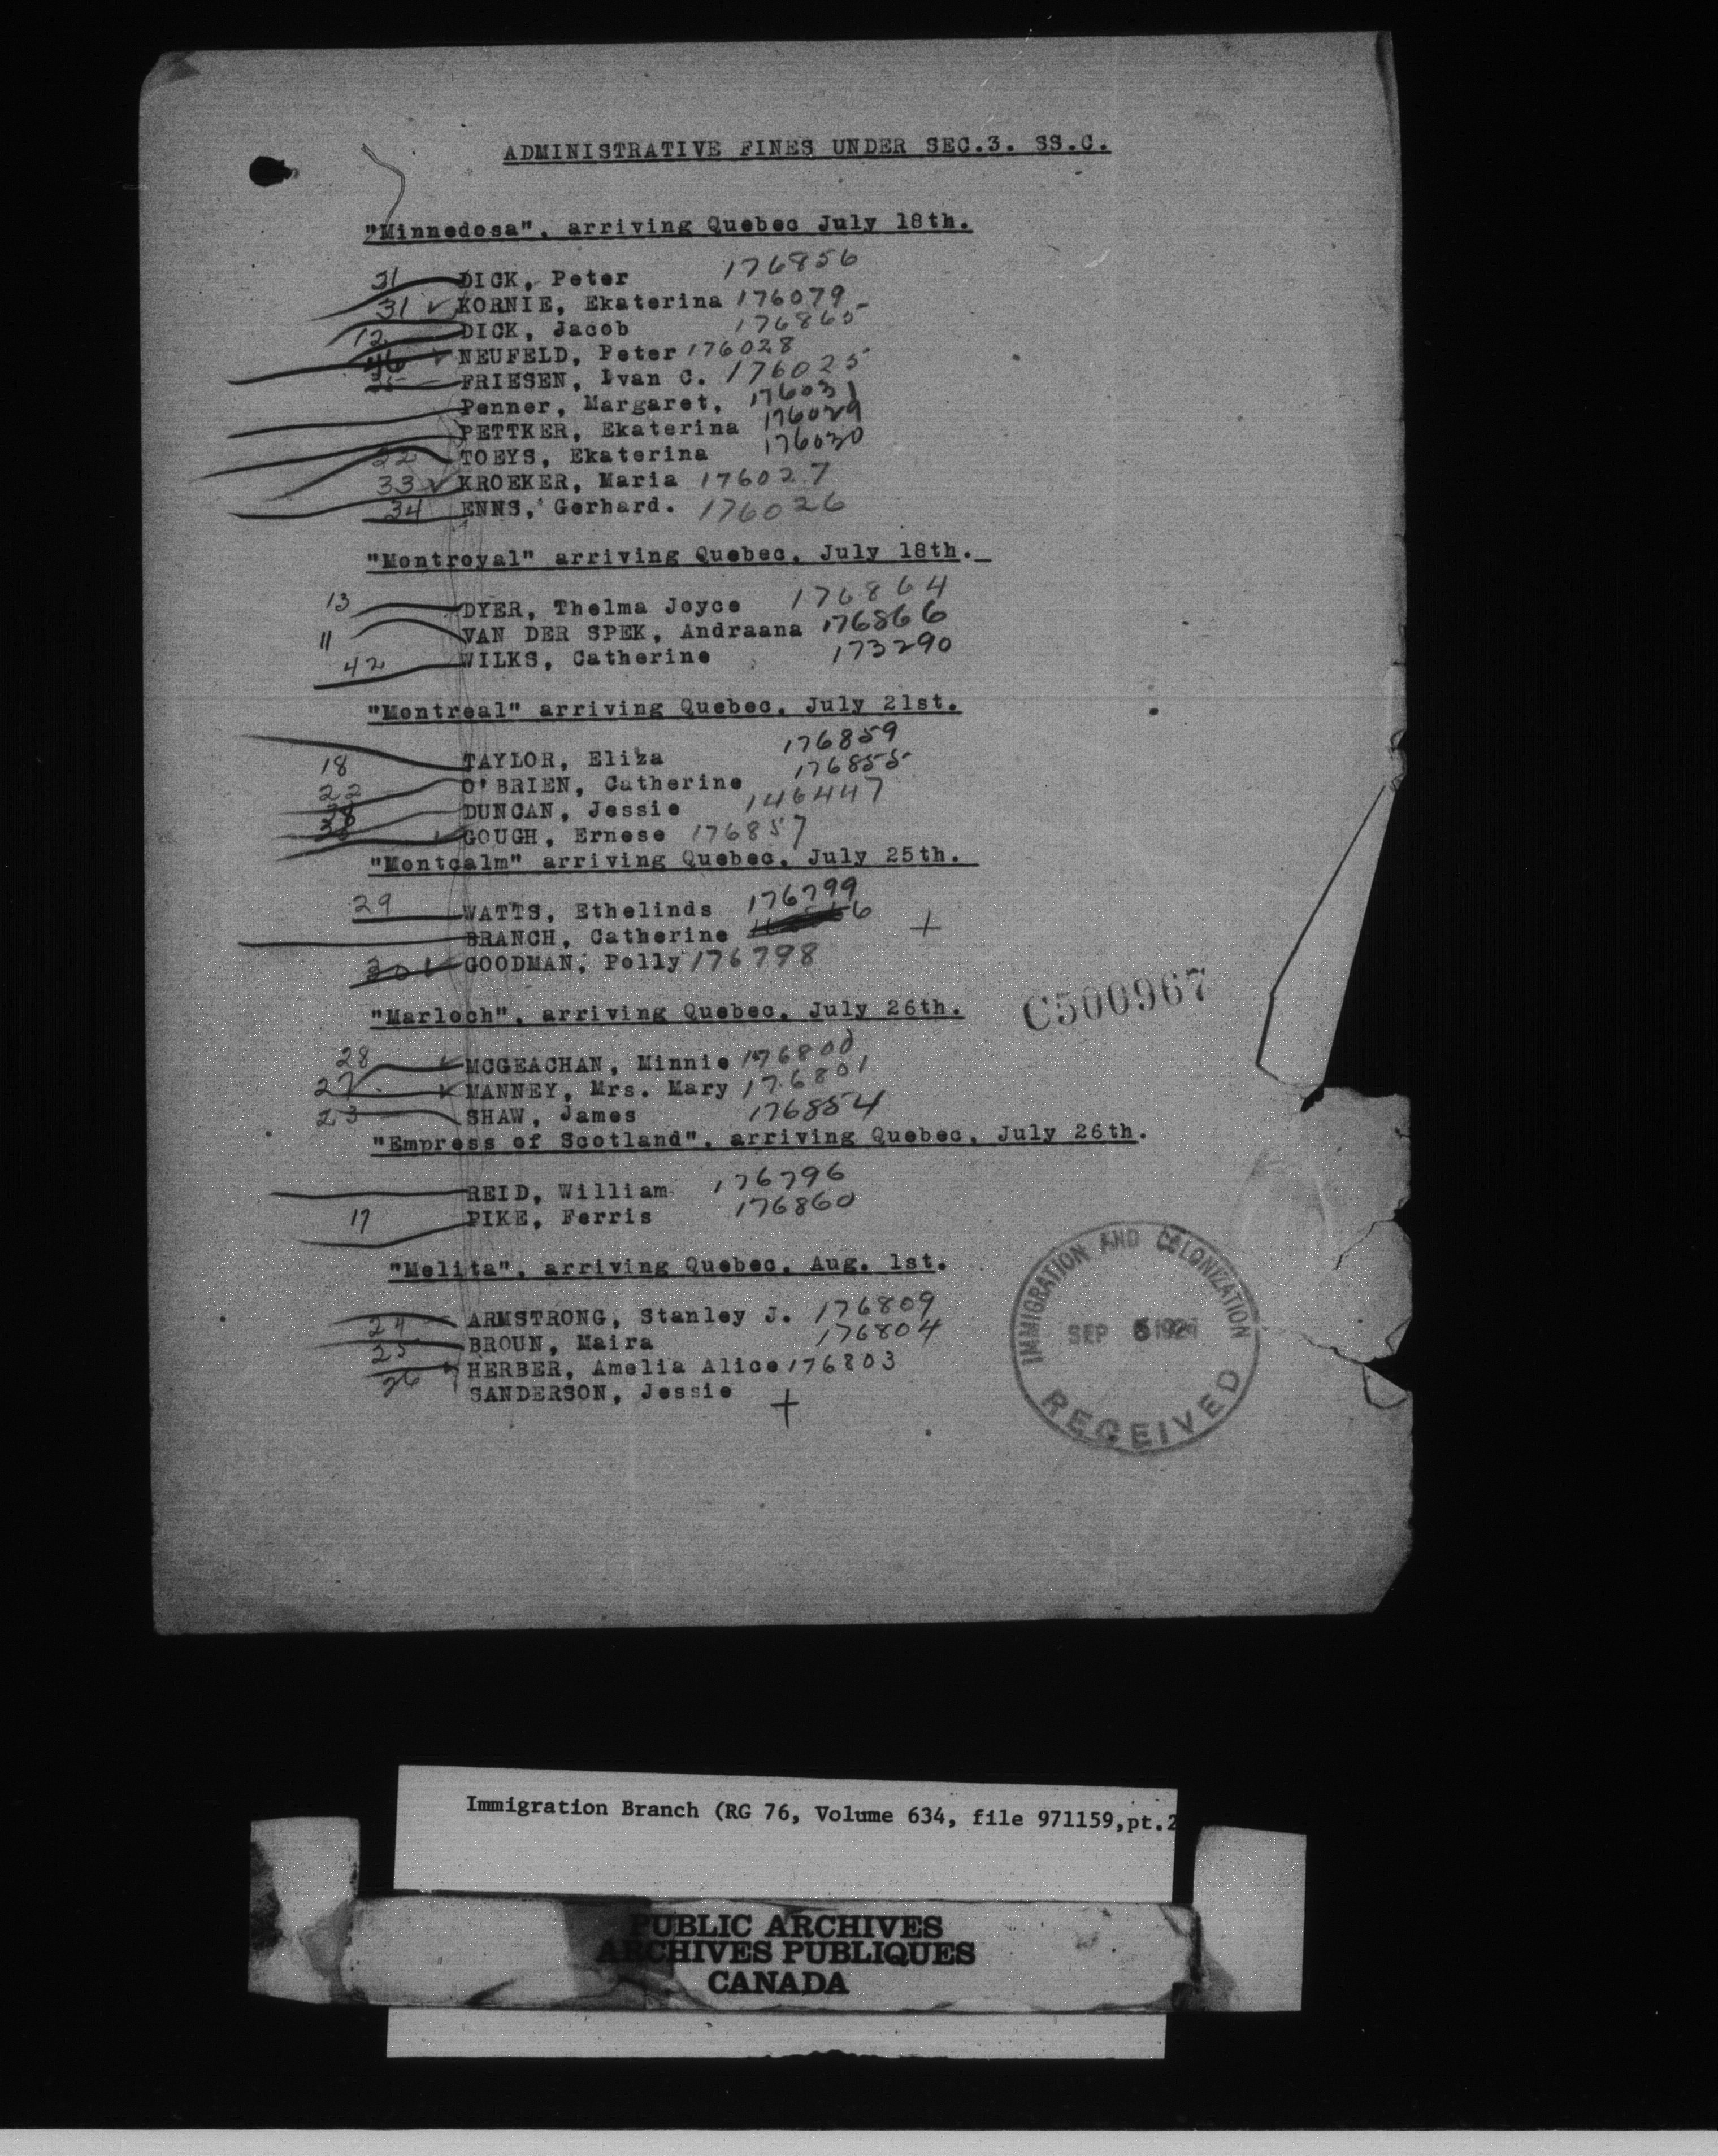 ADMINISTRATIVE FINES UNDER SEC.3. SS.C.
"Minnedosa", arriving Quebec July 18th.
31 DICK, Peter 176856
31 ✓ KORNIE, Ekaterina 176079
12 DICK, Jacob 176865
46 ✓ NEUFELD, Peter 176028
35 FRIESEN, Ivan C. 176025
Penner, Margaret, 176031
PETTKER, Ekaterina 176029
22 TOEYS, Ekaterina 176030
33 ✓ KROEKER, Maria 176027
34 ENNS, Gerhard. 176026
"Montroyal" arriving Quebec, July 18th.
13 DYER, Thelma Joyce 176864
11 VAN DER SPEK, Andraana 176866
42 WILKS, Catherine 173290
"Montreal" arriving Quebec, July 21st.
18 TAYLOR, Eliza 176859
22 O'BRIEN, Catherine 176855
38 DUNCAN, Jessie 146447
✓ GOUGH, Ernese 176857
"Montcalm" arriving Quebec, July 25th.
29 WATTS, Ethelinds 176799
BRANCH, Catherine +
30 ✓ GOODMAN, Polly 176798
"Marloch", arriving Quebec, July 26th.
C500967
28 ✓ MCGEACHAN, Minnie 176800
27 ✓ MANNEY, Mrs. Mary 176801
23 SHAW, James 176854
"Empress of Scotland", arriving Quebec, July 26th.
REID, William 176796
17 PIKE, Ferris 176860
"Melita", arriving Quebec, Aug. 1st.
24 ARMSTRONG, Stanley J. 176809
25 BROUN, Maira 176804
26 HERBER, Amelia Alice 176803
SANDERSON, Jessie +
IMMIGRATION AND COLONIZATION
SEP 5 1924
RECEIVED
Immigration Branch (RG 76, Volume 634, file 971159,pt.2
PUBLIC ARCHIVES
ARCHIVES PUBLIQUES
CANADA